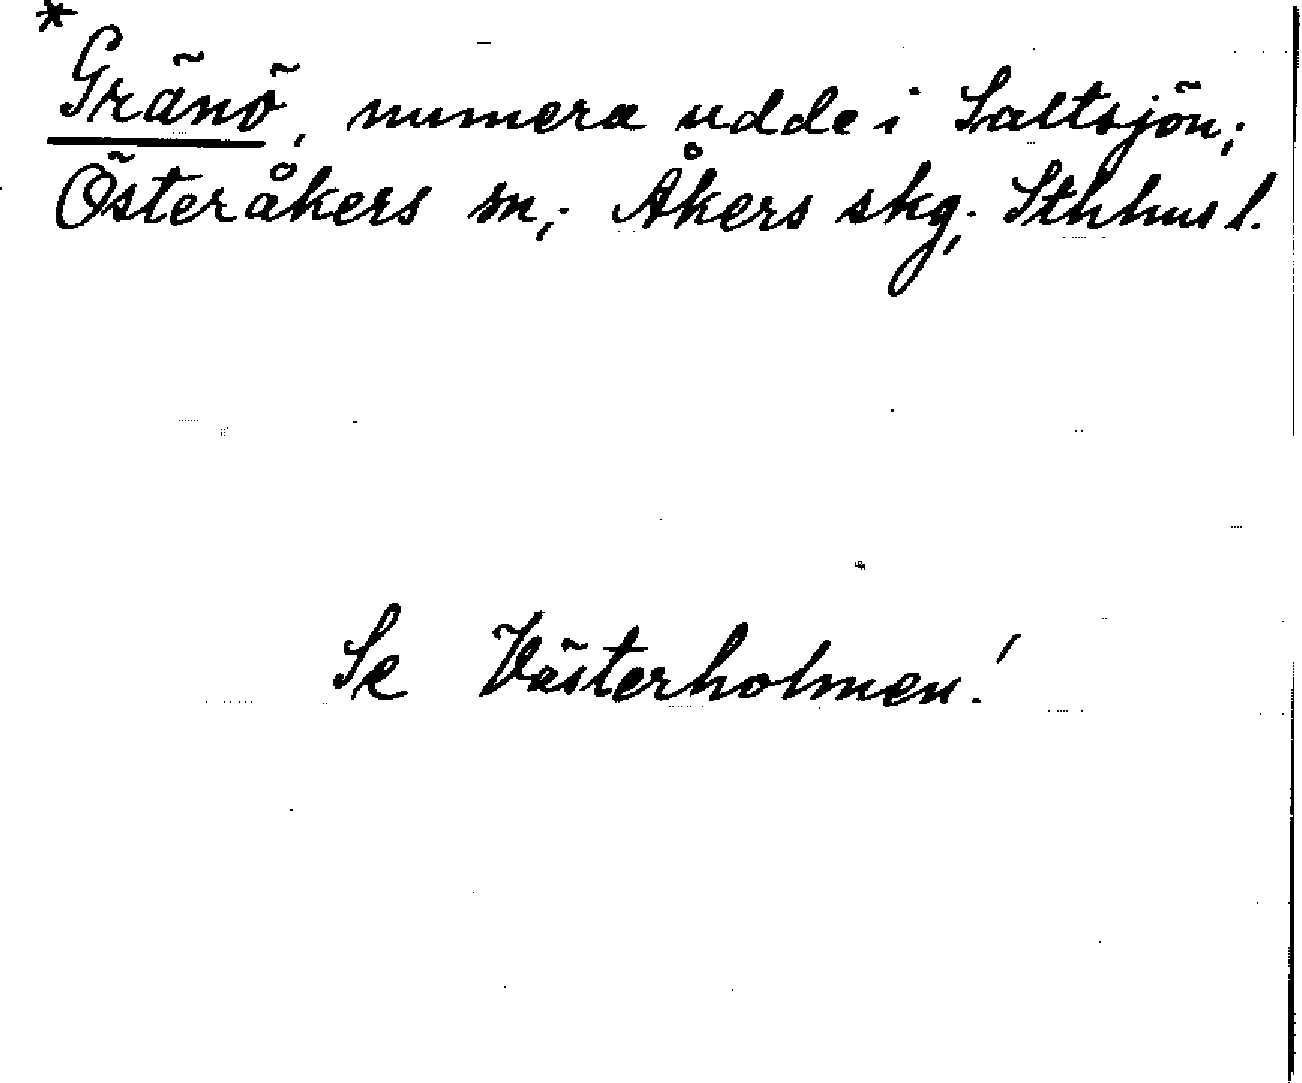 *Gränö, numera udde i Saltsjön;
Österåkers sn; Åkers skg; Sthhus l.
Se Västerholmen!